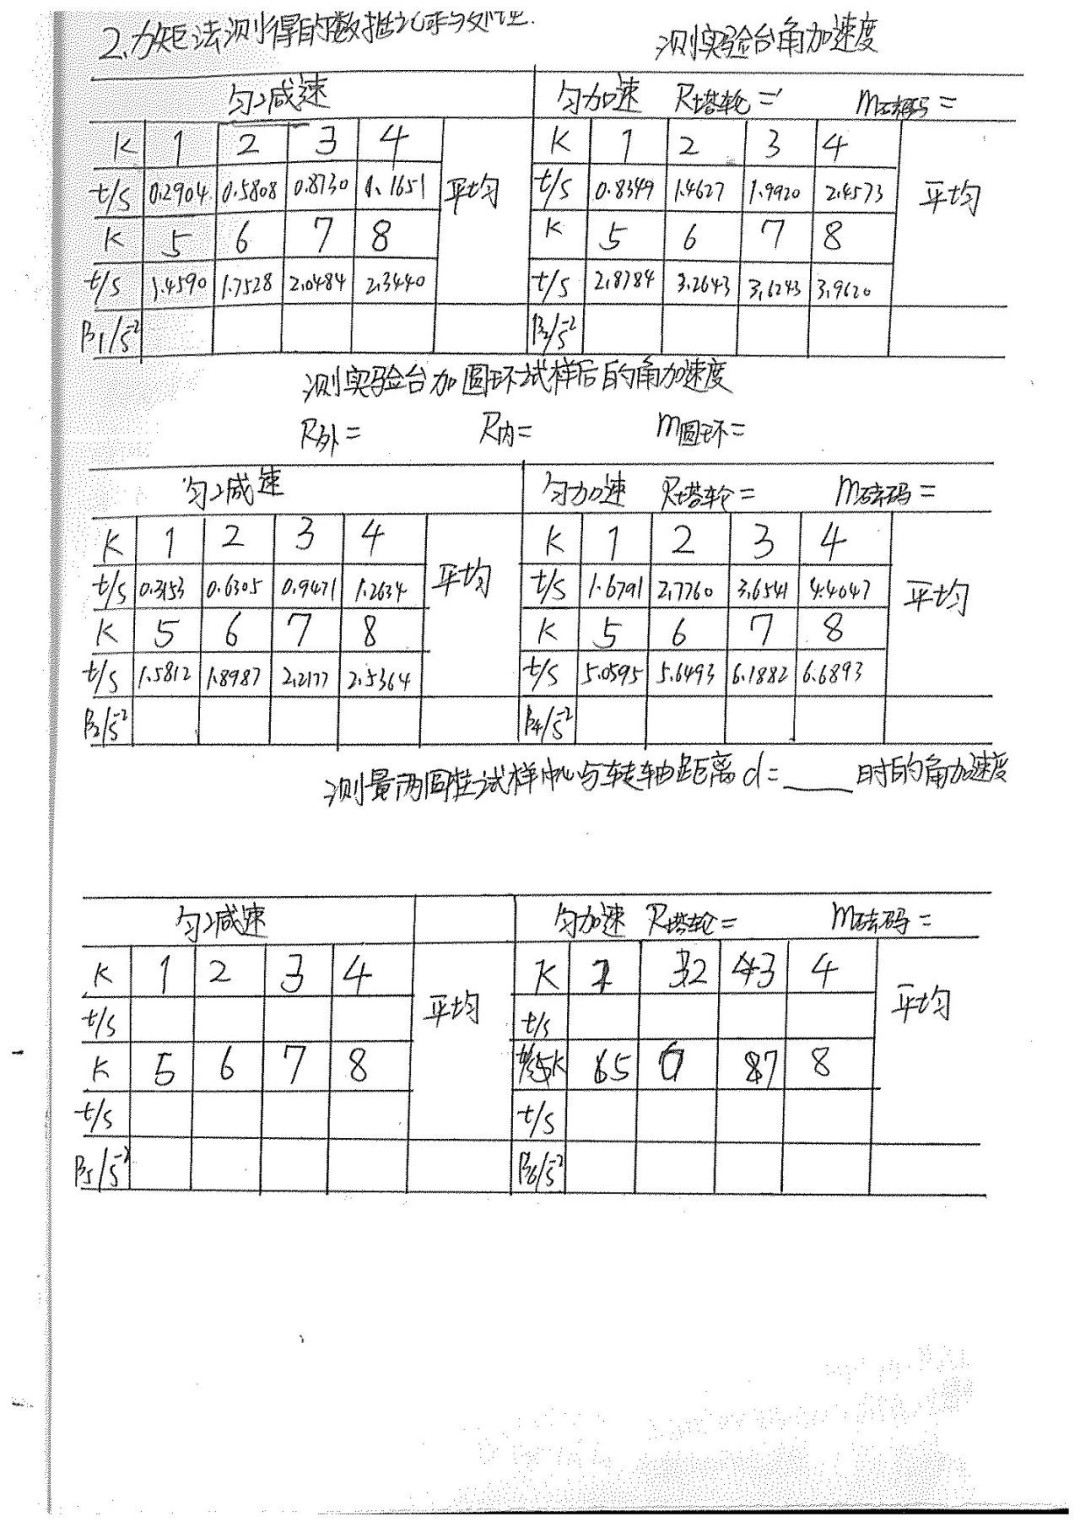 2.力矩法测得的数据记录与处理.
测实验台角加速度
匀减速 匀加速 R塔轮= m砝码=
K 1 2 3 4 平均 K 1 2 3 4 平均
t/s 0.2904 0.5808 0.8730 1.1651 t/s 0.8349 1.4627 1.9920 2.4573
K 5 6 7 8 K 5 6 7 8
t/s 1.4590 1.7528 2.0484 2.3440 t/s 2.8784 3.2643 3.6243 3.9620
β₁/s⁻² β₂/s⁻²
测实验台加圆环试样后的角加速度
R外= R内= m圆环=
匀减速 匀加速 R塔轮= m砝码=
K 1 2 3 4 平均 K 1 2 3 4 平均
t/s 0.3153 0.6305 0.9471 1.2634 t/s 1.6791 2.7760 3.6541 4.4047
K 5 6 7 8 K 5 6 7 8
t/s 1.5812 1.8987 2.2177 2.5364 t/s 5.0595 5.6493 6.1882 6.6893
β₃/s⁻² β₄/s⁻²
测量两圆柱试样中心与转轴距离d=____时的角加速度
匀减速 匀加速 R塔轮= m砝码=
K 1 2 3 4 平均 K 1 2 3 4 平均
t/s t/s
K 5 6 7 8 K 5 6 7 8
t/s t/s
β₅/s⁻² β₆/s⁻²